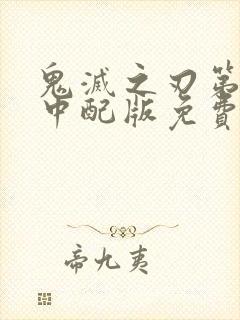 鬼滅之刃第
中配版免費
帝九夷